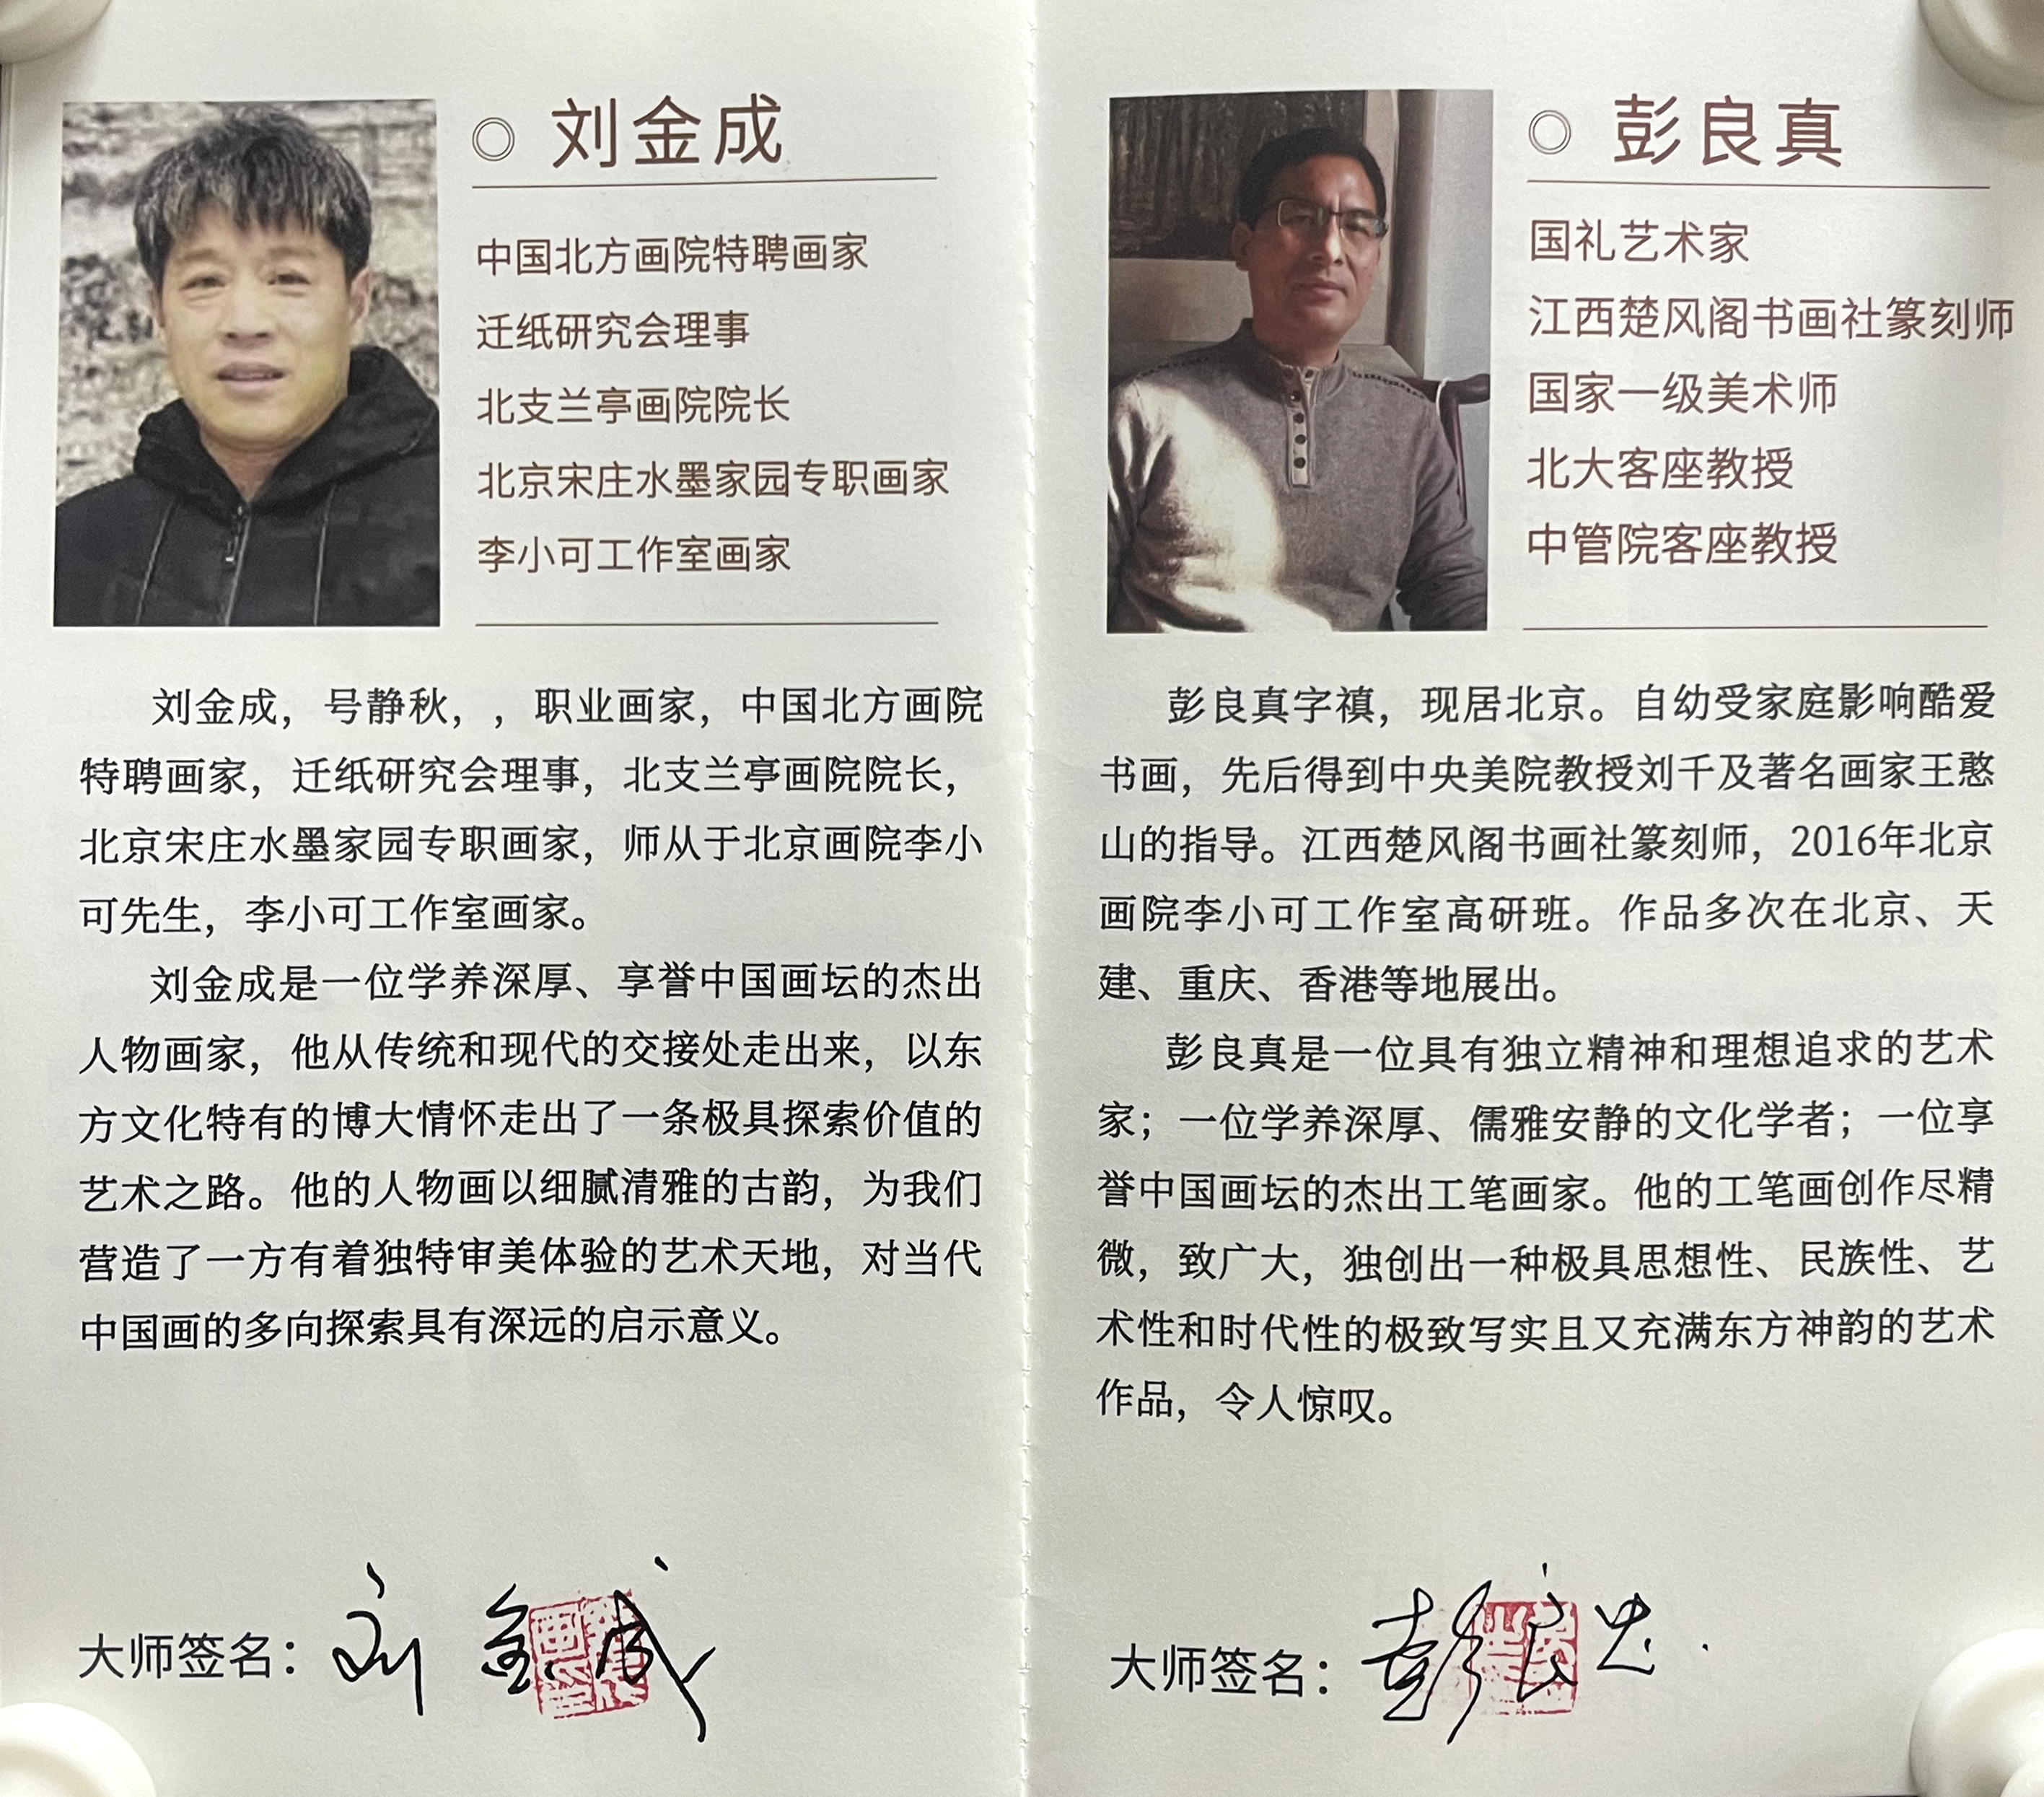 ◎ 刘金成
中国北方画院特聘画家
迁纸研究会理事
北支兰亭画院院长
北京宋庄水墨家园专职画家
李小可工作室画家
刘金成，号静秋，，职业画家，中国北方画院
特聘画家，迁纸研究会理事，北支兰亭画院院长，
北京宋庄水墨家园专职画家，师从于北京画院李小
可先生，李小可工作室画家。
刘金成是一位学养深厚、享誉中国画坛的杰出
人物画家，他从传统和现代的交接处走出来，以东
方文化特有的博大情怀走出了一条极具探索价值的
艺术之路。他的人物画以细腻清雅的古韵，为我们
营造了一方有着独特审美体验的艺术天地，对当代
中国画的多向探索具有深远的启示意义。
大师签名：刘金成
◎ 彭良真
国礼艺术家
江西楚风阁书画社篆刻师
国家一级美术师
北大客座教授
中管院客座教授
彭良真字禛，现居北京。自幼受家庭影响酷爱
书画，先后得到中央美院教授刘千及著名画家王憨
山的指导。江西楚风阁书画社篆刻师，2016年北京
画院李小可工作室高研班。作品多次在北京、天
建、重庆、香港等地展出。
彭良真是一位具有独立精神和理想追求的艺术
家；一位学养深厚、儒雅安静的文化学者；一位享
誉中国画坛的杰出工笔画家。他的工笔画创作尽精
微，致广大，独创出一种极具思想性、民族性、艺
术性和时代性的极致写实且又充满东方神韵的艺术
作品，令人惊叹。
大师签名：彭良真